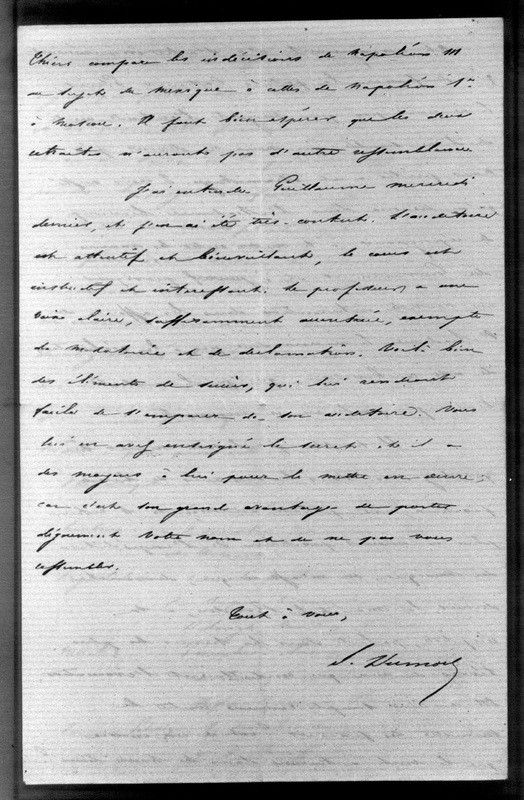 Thiers compare les indécisions de Napoléon III
au sujet du Mexique à celles de Napoléon 1er
à Moscou. Il faut bien espérer que les deux
retraites n'auront pas d'autre ressemblance
J'ai entendu Guillaume mercredi
dernier, et j'en ai été très-content. L'auditoire
est attentif et bienveillant, le cours est
instructif et intéressant. Le professeur a une
voix claire, suffisamment accentuée, exempte
de monotonie et de déclamation. Voilà bien
des éléments de succès, qui lui rendront
facile de s'emparer de son auditoire. Vous
lui en avez enseigné le secret et il a
des moyens à lui pour le mettre en œuvre,
car c'est son grand avantage de porter
dignement votre nom et de ne pas vous
ressembler.
Tout à vous,
S. Dumon